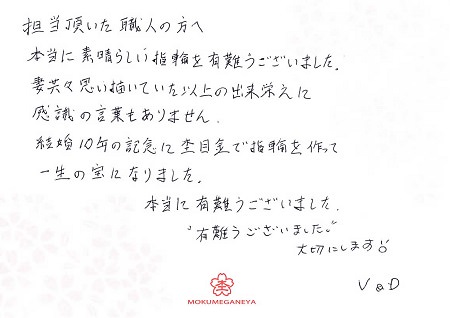 担当頂いた職人の方へ
本当に素晴らしい指輪を有難うございました。
妻共々思い描いていた以上の出来栄えに
感謝の言葉もありません。
結婚10年の記念に杢目金で指輪を作って
一生の宝になりました。
本当に有難うございました。
"有難うございました。"
大切にします
V&D
MOKUMEGANEYA